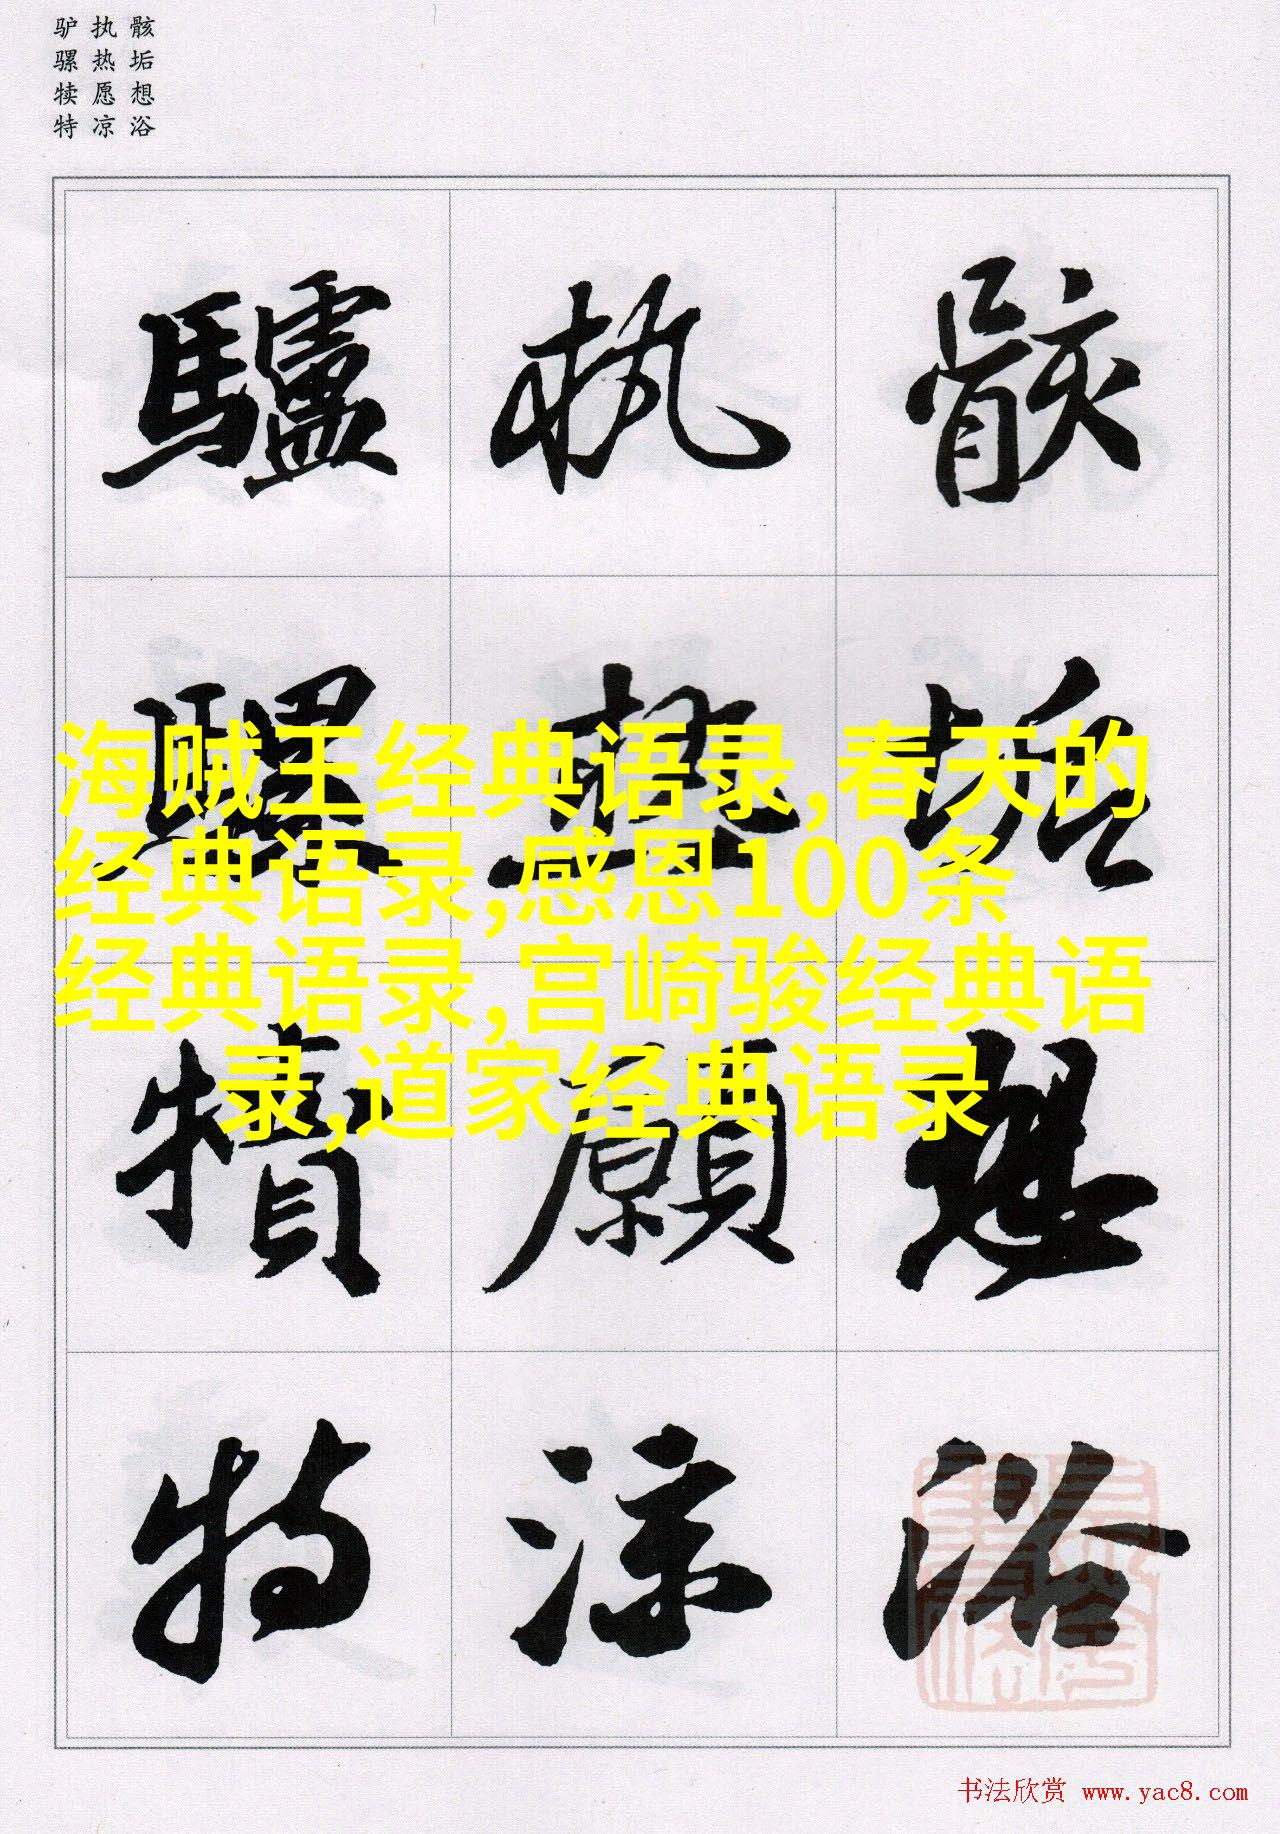 骸垢想浴
执热愿凉
驴骡犊特
骸垢想浴
执熱願涼
驢騾犢特
海贼王经典语录,春天的
经典语录,感恩100条
经典语录,宫崎骏经典语
录,道家经典语录
书法欣赏 www.yac8.com